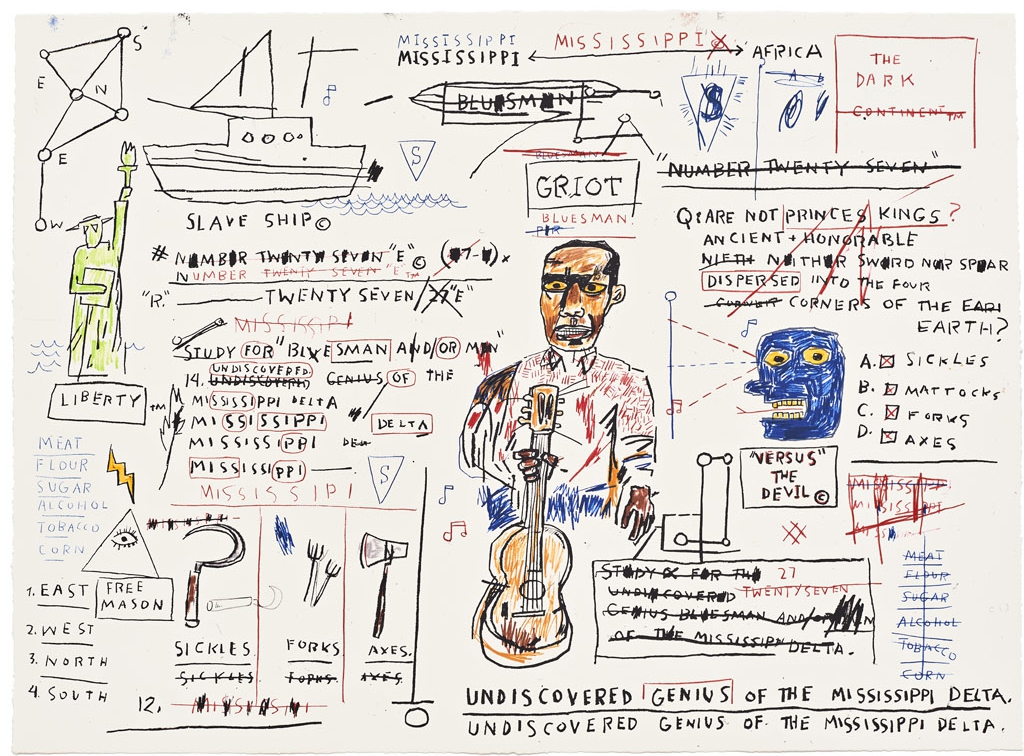 S
E
N
E
W
MISSISSIPPI
MISSISSIPPI
MISSISSIPPI
AFRICA
THE
DARK
CONTINENT™
BLUESMAN
S
A B
S
BLUESMAN
GRIOT
BLUESMAN
"NUMBER TWENTY SEVEN"
SLAVE SHIP©
# NUMBER TWENTY SEVEN "E"©
NUMBER TWENTY SEVEN "E"™
"R."
TWENTY SEVEN / 27 "E"
MISSISSIPI
STUDY FOR "BLUESMAN AND/OR MEN"
UNDISCOVERED
14. UNDISCOVERD GENIUS OF THE
MISSISSIPPI DELTA
MISSISSIPPI
DELTA
MISSISSIPPI
MISSISSIPPI
MISSISSIPI
S
LIBERTY™
Q: ARE NOT PRINCES KINGS?
ANCIENT + HONORABLE
NIETH NEITHER SWORD NOR SPEAR
DISPERSED INTO THE FOUR
CORNER CORNERS OF THE EAR
EARTH?
A. SICKLES
B. MATTOCKS
C. FORKS
D. AXES
"VERSUS"
THE
DEVIL©
MISSISSIPPI
MEAT
FLOUR
SUGAR
ALCOHOL
TOBACCO
CORN
FREE
MASON
1. EAST
2. WEST
3. NORTH
4. SOUTH
SICKLES.
SICKLES.
FORKS
FORKS.
AXES.
AXES.
12. MISSISSIPPI
STUDY FOR THE
27
TWENTYSEVEN
UNDISCOVERED
GENIUS BLUESMAN AND/OR
OF THE MISSISSIPPI DELTA.
MEAT
FLOUR
SUGAR
ALCOHOL
TOBACCO
CORN
UNDISCOVERED GENIUS OF THE MISSISSIPPI DELTA.
UNDISCOVERED GENIUS OF THE MISSISSIPPI DELTA.